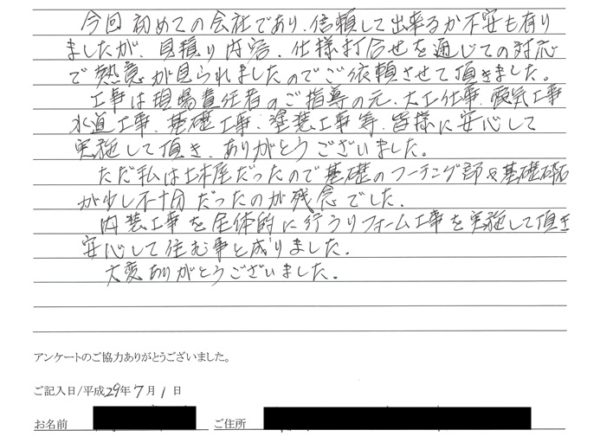 今回初めての会社であり、信頼して出来るか不安も有り
ましたが、見積り内容、仕様打合せを通じての対応
で熱意が見られましたのでご依頼させて頂きました。
工事は現場責任者のご指導の元、大工仕事、電気工事
水道工事、基礎工事、塗装工事等、皆様に安心して
実施して頂き、ありがとうございました。
ただ私は土木屋だったので基礎のフーチング部&基礎砕石
が少し不十分だったのが残念でした。
内装工事を全体的に行うリフォーム工事を実施して頂き
安心して住む事と成りました。
大変ありがとうございました。
アンケートのご協力ありがとうございました。
ご記入日/平成29年7月1日
お名前 ご住所